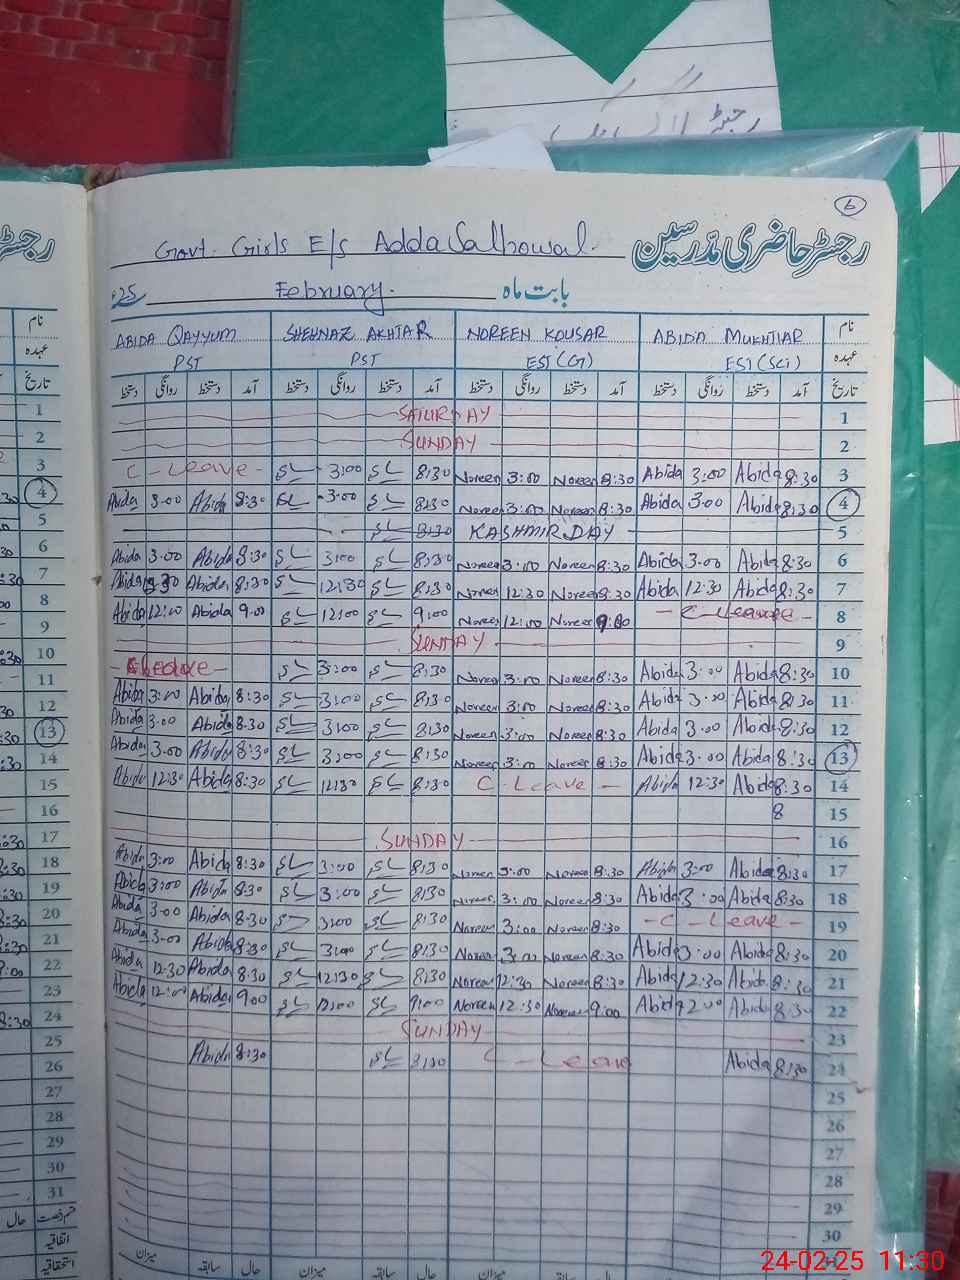 رجسٹر
6
Govt. Girls E/s Adda Salhowal.
رجسٹر حاضری مدرسین
بابت ماہ February. 25ء
نام ABIDA MUKHTIAR NOREEN KOUSAR SHEHNAZ AKHTAR ABIDA QAYYUM
عہدہ EST (SCI) EST (G) PST PST
تاریخ آمد دستخط روانگی دستخط آمد دستخط روانگی دستخط آمد دستخط روانگی دستخط آمد دستخط روانگی دستخط
1 SATURDAY
2 SUNDAY
3 8:30 Abida 3:00 Abida 8:30 Noreen 3:00 Noreen 8:30 3:00 C-Leave
4 8:30 Abida 3:00 Abida 8:30 Noreen 3:00 Noreen 8:30 3:00 8:30 Abida 3:00 Abida
5 KASHMIR DAY 8:30
6 8:30 Abida 3:00 Abida 8:30 Noreen 3:00 Noreen 8:30 3:00 8:30 Abida 3:00 Abida
7 8:30 Abida 12:30 Abida 8:30 Noreen 12:30 Noreen 8:30 12:30 8:30 Abida Abida
8 C-Leave 9:00 Noreen 12:00 Noreen 9:00 12:00 9:00 Abida 12:00 Abida
9 SUNDAY
10 8:30 Abida 3:00 Abida 8:30 Noreen 3:00 Noreen 8:30 3:00
11 8:30 Abida 3:00 Abida 8:30 Noreen 3:00 Noreen 8:30 3:00 8:30 Abida 3:00 Abida
12 8:30 Abida 3:00 Abida 8:30 Noreen 3:00 Noreen 8:30 3:00 8:30 Abida 3:00 Abida
13 8:30 Abida 3:00 Abida 8:30 Noreen 3:00 Noreen 8:30 3:00 8:30 Abida 3:00 Abida
14 8:30 Abida 12:30 Abida C Leave 8:30 12:30 8:30 Abida 12:30 Abida
15 8
16 SUNDAY
17 8:30 Abida 3:00 Abida 8:30 Noreen 3:00 Noreen 8:30 3:00 8:30 Abida 3:00 Abida
18 8:30 Abida 3:00 Abida 8:30 Noreen 3:00 Noreen 8:30 3:00 8:30 Abida 3:00 Abida
19 C-Leave 8:30 Noreen 3:00 Noreen 8:30 3:00 8:30 Abida 3:00 Abida
20 8:30 Abida 3:00 Abida 8:30 Noreen 3:00 Noreen 8:30 3:00 8:30 Abida 3:00 Abida
21 8:30 Abida 12:30 Abida 8:30 Noreen 12:30 Noreen 8:30 12:30 8:30 Abida 12:30 Abida
22 8:30 Abida Abida 9:00 Noreen 12:30 Noreen 9:00 12:00 9:00 Abida 12:00 Abida
23 SUNDAY
24 8:30 Abida C-Leave 8:30 Abida
25
26
27
28
29
30
حال سابقہ میزان حال سابقہ میزان
رجسٹر
نام
عہدہ
تاریخ
1
2
3
4
5
6
7
8
9
10
11
12
13
14
15
16
17
18
19
20
21
22
23
24
25
26
27
28
29
30
31
قسم رخصت حال
اتفاقیہ
استحقاقیہ
24-02-25 11:30